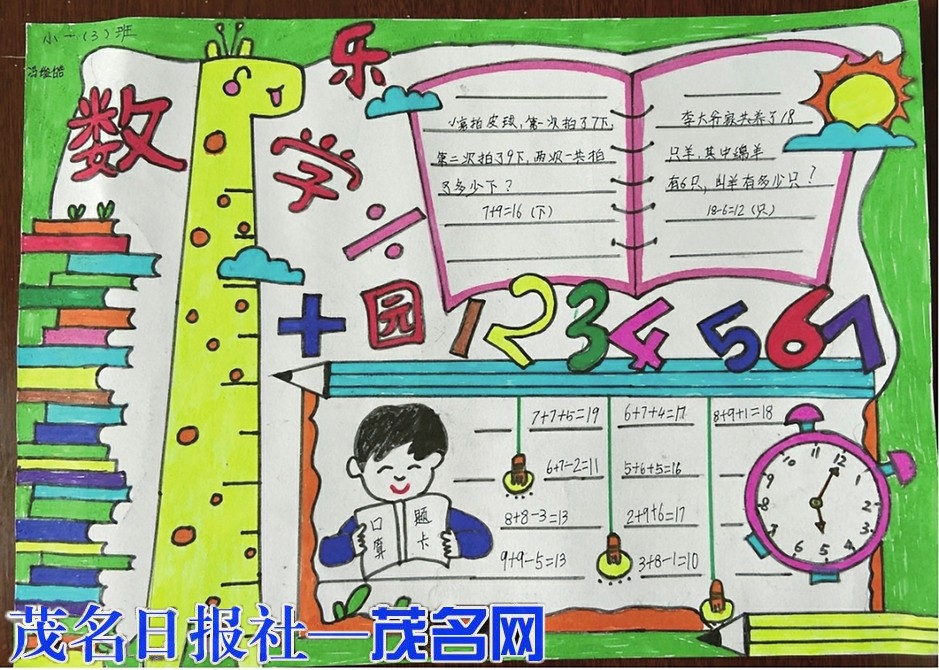 小一（3）班
数学乐园
小高拍皮球，第一次拍了7下，
第二次拍了9下，两次一共拍
了多少下？
7+9=16（下）
李大爷家共养了18
只羊，其中绵羊
有6只，山羊有多少只？
18-6=12（只）
÷
+
1 2 3 4 5 6 7
7+7+5=19
6+7+4=17
8+9+1=18
6+7-2=11
5+6+5=16
8+8-3=13
2+9+6=17
9+9-5=13
3+8-1=10
口算
题卡
12
11
10
9
8
7
6
5
4
3
2
1
茂名日报社—茂名网